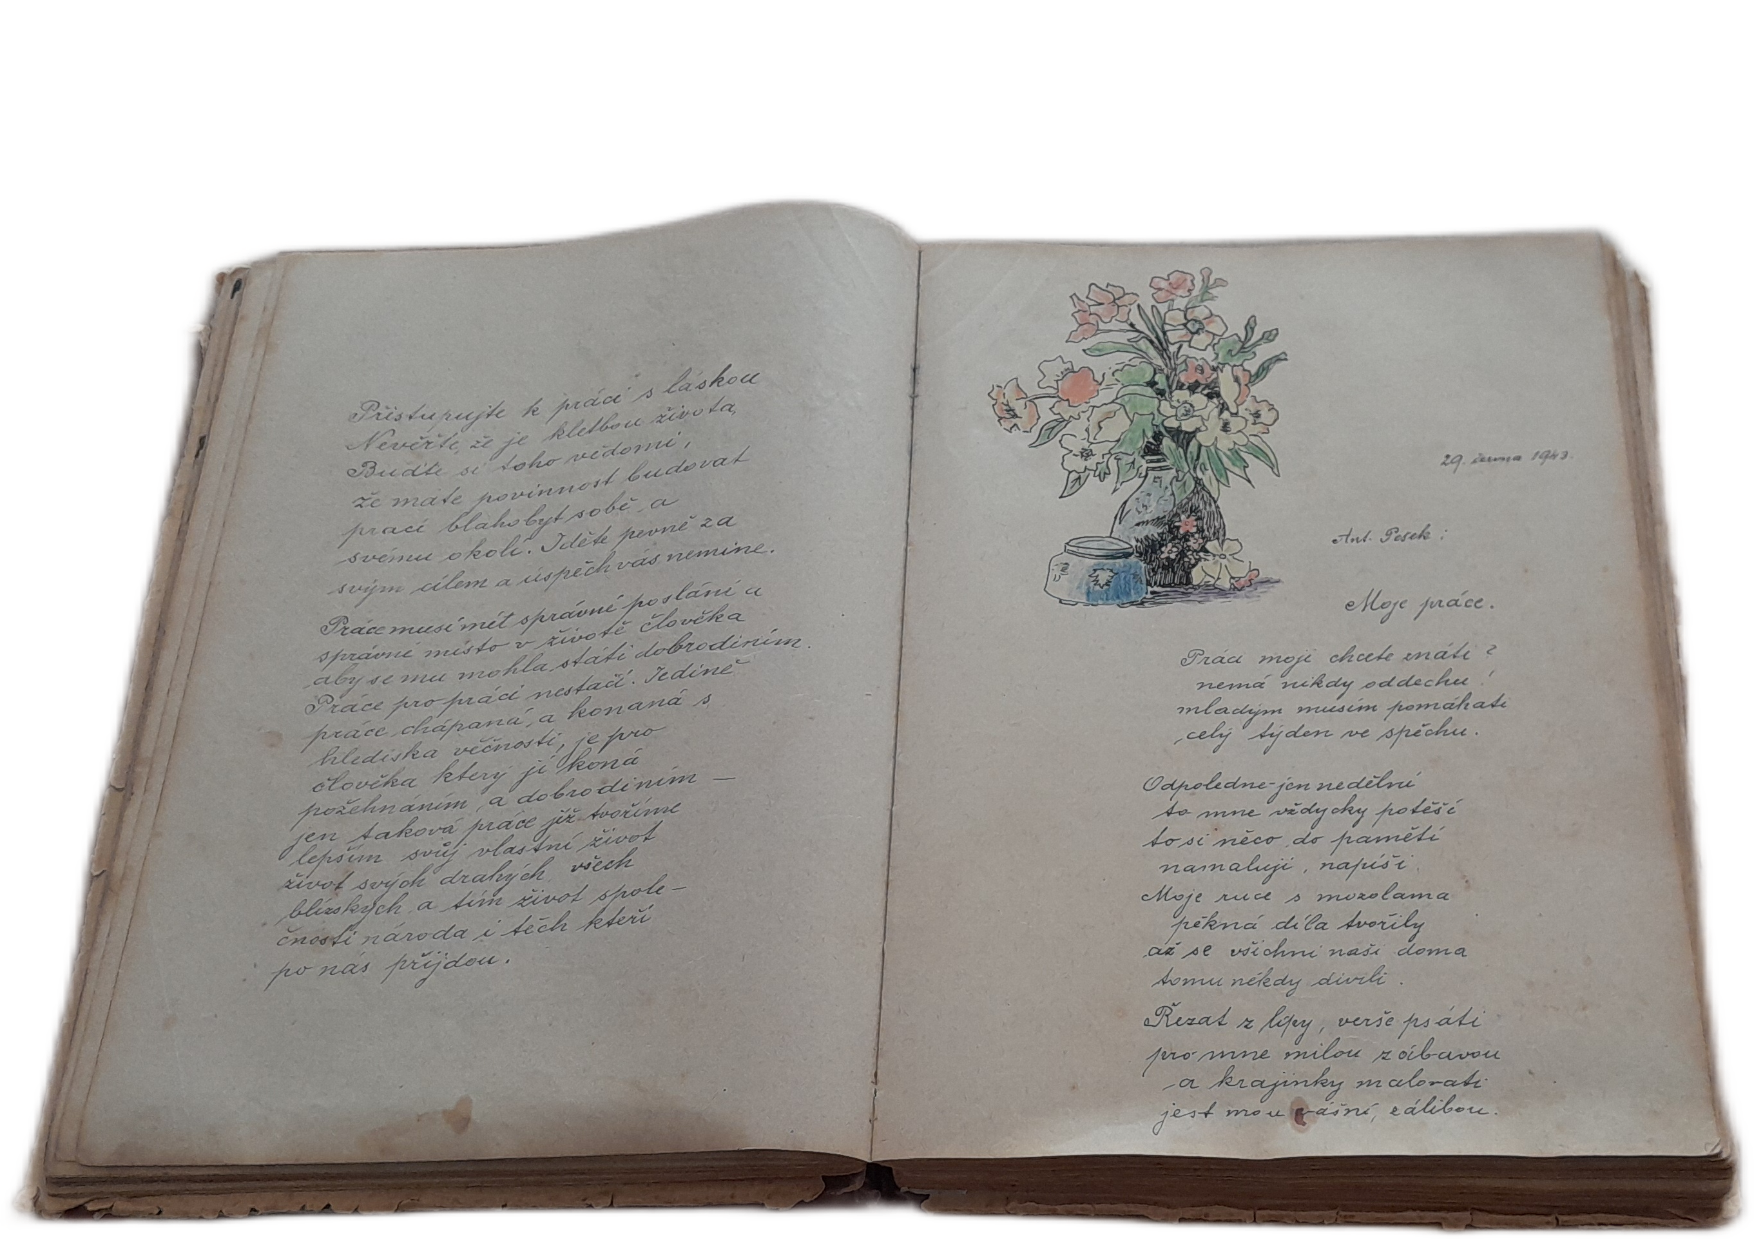 Přistupujte k práci s láskou
Nevěřte, že je kletbou života,
Buďte si toho vědomi,
že máte povinnost budovat
prací blahobyt sobě a
svému okolí. Jděte pevně za
svým cílem a úspěch vás nemine.
Práce musí mít správné poslání a
správné místo v životě člověka
aby se mu mohla státi dobrodiním.
Práce pro práci nestačí. Jedině
práce chápaná, a konaná s
hlediska věčnosti, je pro
člověka který ji koná
požehnáním a dobrodiním –
jen taková práce jíž tvoříme
lepším svůj vlastní život
život svých drahých všech
blízských a tím život spole-
čnosti národa i těch kteří
po nás přijdou.
29. června 1943.
Ant. Pesek:
Moje práce.
Práci moji chcete znáti?
nemá nikdy oddechu!
mladým musím pomáhati
celý týden ve spěchu.
Odpoledne-jen nedělní
to mne vždycky potěší
to si něco do paměti
namaluji, napíši.
Moje ruce s mozolama
pěkná díla tvořily
až se všichni naši doma
tomu někdy divili.
Řezat z lípy, verše psáti
pro mne milou zábavou
a krajinky malovati
jest mou vášní, zálibou.